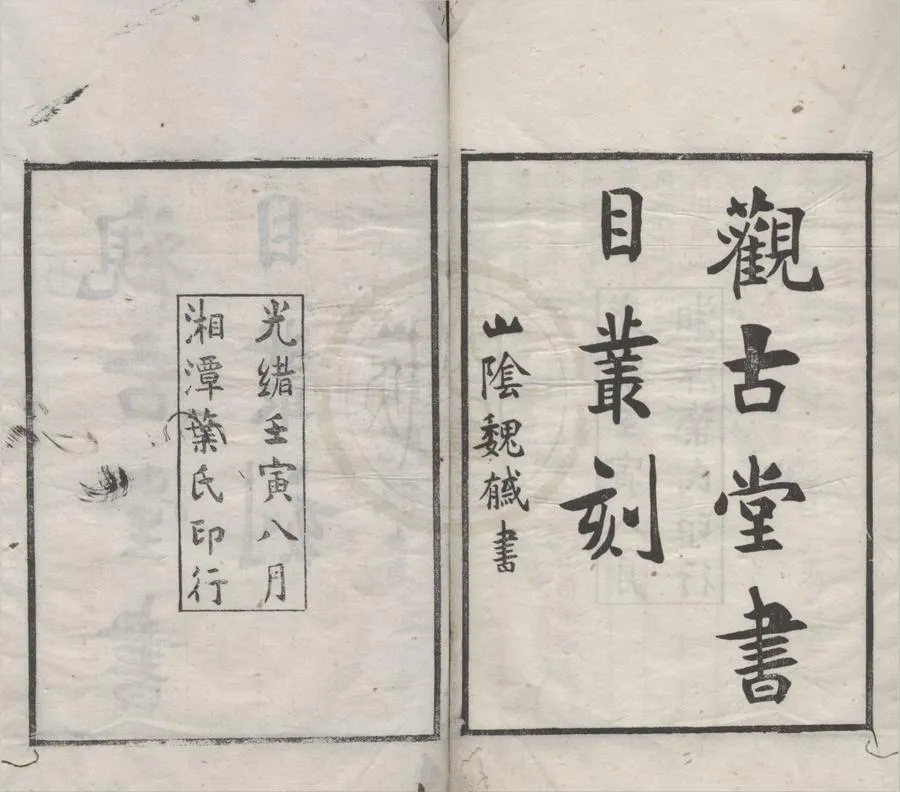 觀古堂書
目叢刻
山陰魏椷書
光緒壬寅八月
湘潭葉氏印行